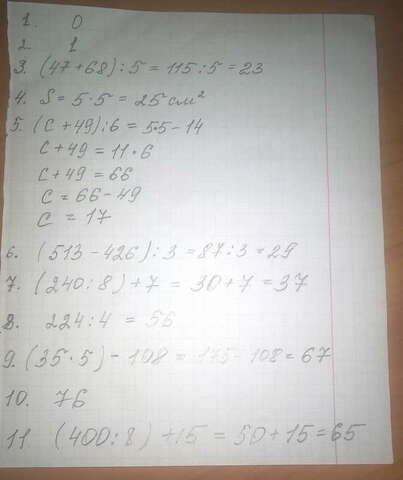 1. 0
2. 1
3. (47+68):5=115:5=23
4. S=5·5=25см²
5. (с+49):6=5·5-14
с+49=11·6
с+49=66
с=66-49
с=17
6. (513-426):3=87:3=29
7. (240:8)+7=30+7=37
8. 224:4=56
9. (35·5)-108=175-108=67
10. 76
11 (400:8)+15=50+15=65